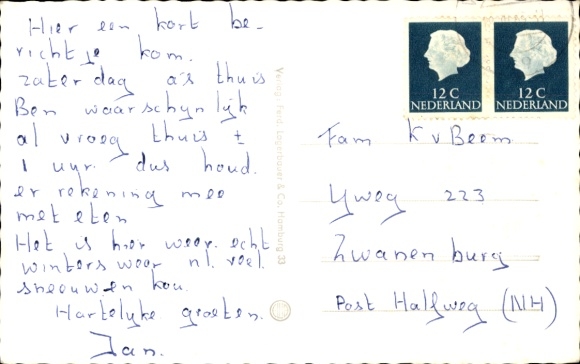 Hier een kort be-
richtje kom.
zaterdag a.s thuis
Ben waarschynlyk
al vroeg thuis ±
1 uur. dus houd.
er rekening mee
met eten
Het is hier weer. echt
winters weer nl. veel.
sneeuw en kou.
Hartelyke groeten.
Jan.
12 C
NEDERLAND
12 C
NEDERLAND
Fam K v Beem
Yweg 223
Zwanenburg
Post Halfweg (NH)
& Co. Hamburg 33